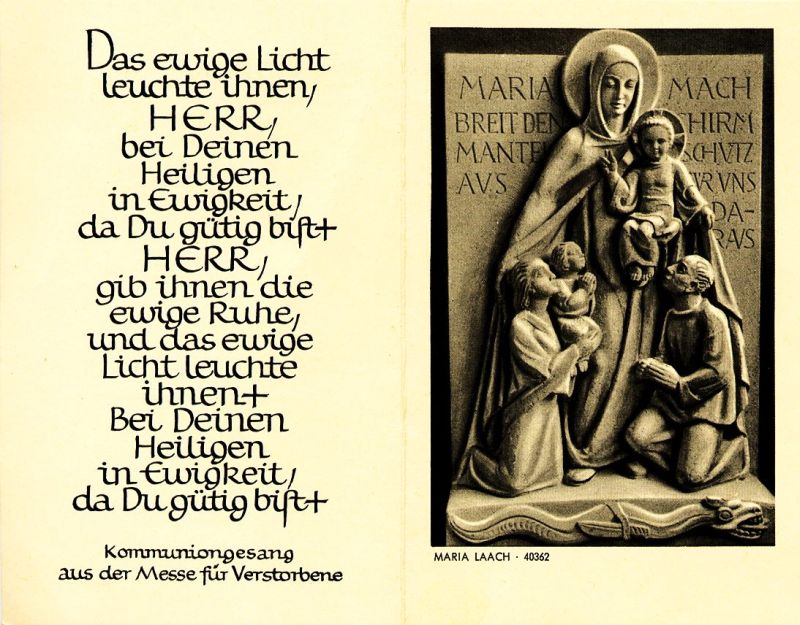 Das ewige Licht
leuchte ihnen,
HERR,
bei Deinen
Heiligen
in Ewigkeit,
da Du gütig biſt+
HERR,
gib ihnen die
ewige Ruhe,
und das ewige
Licht leuchte
ihnen+
Bei Deinen
Heiligen
in Ewigkeit,
da Du gütig biſt+
Kommuniongesang
aus der Messe für Verstorbene
MARIA
BREIT DEN
MANTEL
AVS
MACH
SCHIRM
SCHVTZ
VR VNS
DA-
RAVS
MARIA LAACH · 40362